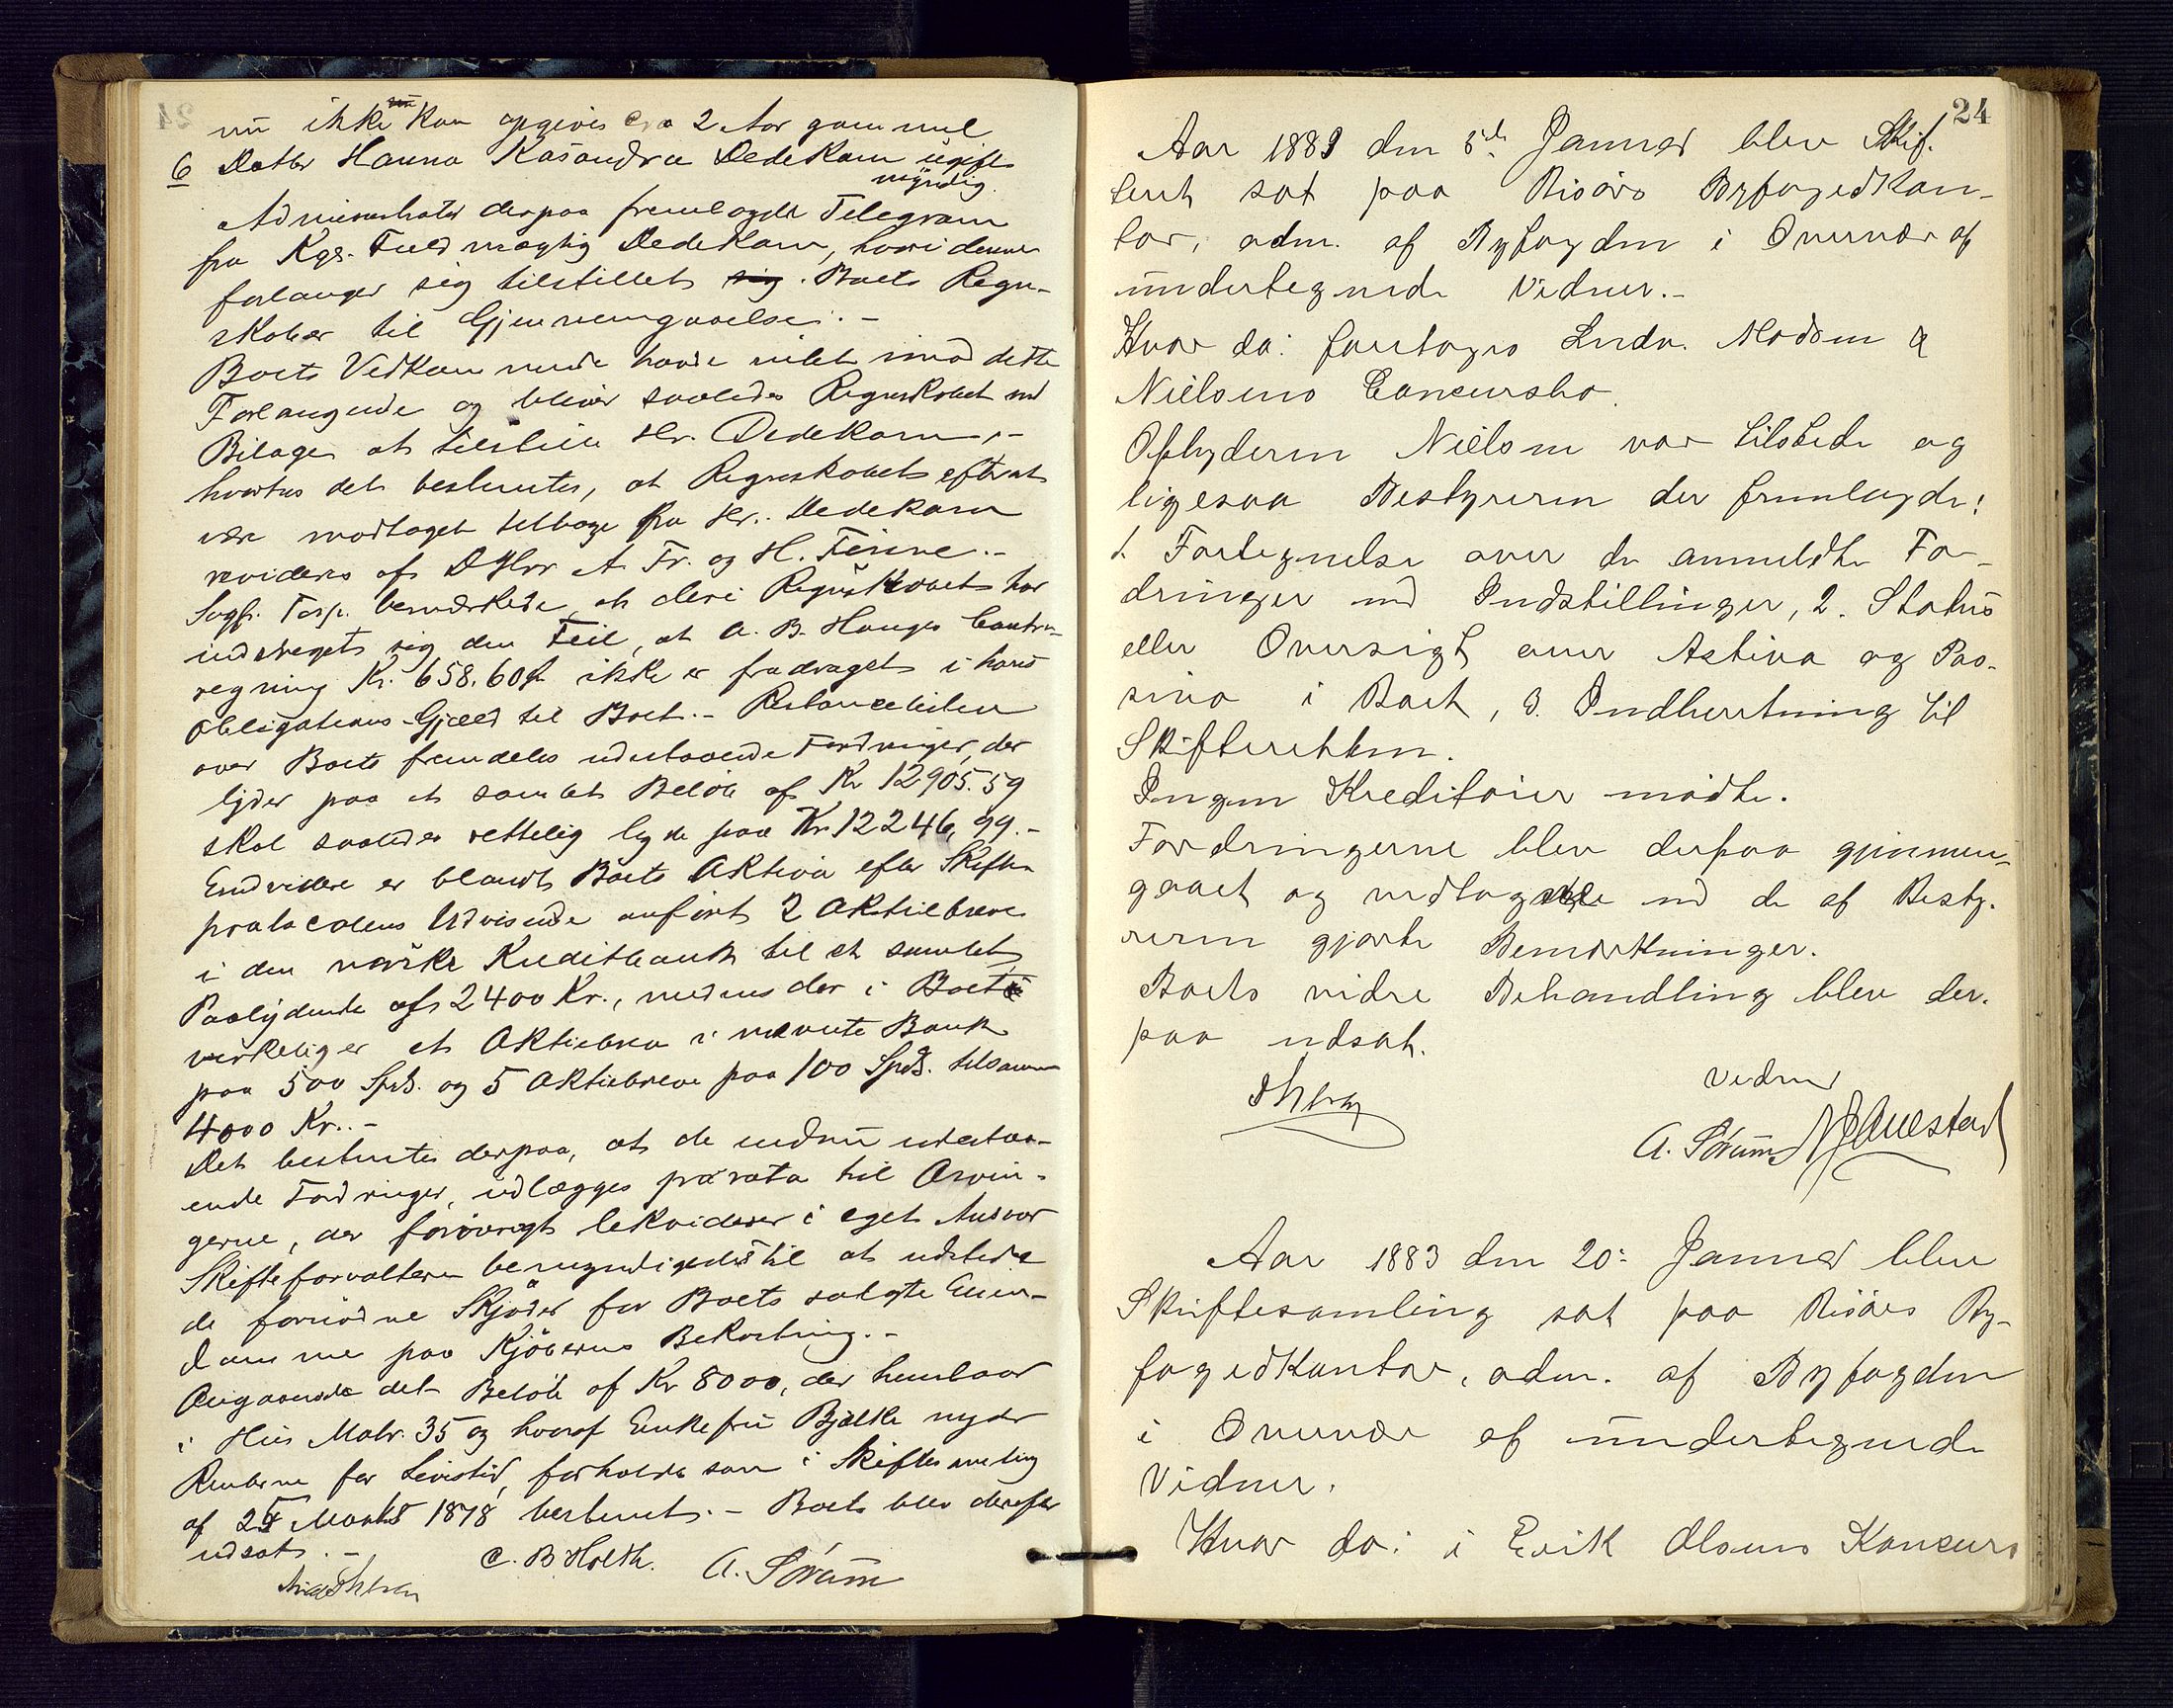 nu ikke kan opgives ca 2 Aar gammel
6 Datter Hanna Kasandra Dedekam ugift
myndig.
Administrator derpaa fremlagde Telegram
fra Kgs. Fuldmægtig Dedekam, hvori denne
forlanger sig tilstillet sig. Boets Regn-
skaber til Gjennemgaaelse. -
Boets Vedkommende havde intet imod dette
Forlangende og bliver saaledes Regnskabet med
Bilage at tilstille Hr. Dedekam, -
hvorhos det besluttes, at Regnskabet efter at
være modtaget tilbage fra Hr. Dedekam
revideres af DHrr A. Fr. og H. Finne. -
Sagf. Tasp. bemærkede at der i Regnskabet har
indsneget sig den Feil, at A. B. Hauges Contra-
regning Kr. 658.60 ikke er fradraget i hans
Obligations-Gjæld til Boet. - Restancelisten
over Boets fremdeles udestaaende Fordringer, der
lyder paa et samlet Beløb af Kr 12905.59
skal saaledes rettelig lyde paa Kr 12246,99. -
Endvidere er blandt Boets Aktiva efter Skifte-
protocolens Udvisende anført 2 Aktiebreve
i den norske Kreditbank til et samlet
Paalydende af 2400 Kr., medens der i Boet
virkelig er et Aktiebrev i nævnte Bank
paa 500 Spd. og 5 Aktiebreve paa 100 Spd. tilsammen
4000 Kr. -
Det besluttes derpaa, at de endnu udestaa-
ende Fordringer, udlægges pro rata til Arvin-
gerne, der forøvrigt likviderer i eget Ansvar
Skifteforvalteren bemyndigedes til at udstede
de fornødne Skjøder for Boets solgte Eien-
damme paa Kjøbernes Bekostning. -
Angaaende det Beløb af Kr 8000, der henstaar
i Hus Matr. 35 og hvoraf Enkefru Bjelke nyder
Renterne for Levetid, forholdes som i Skiftesamling
af 25 Marts 1878 bestemt. - Boet blev derefter
udsat. -
C. B. Holth. A. Sørum
24
Aar 1883 den 5te Januar blev Skif-
teret sat paa Risørs Byfogedkon-
tor, adm. af Byfogden i Overvær af
undertegnede Vidner. -
Hvor da: foretoges Lndr. Madsen &
Nielsens Concursbo.
Opbyderen Nielsen var tilstede og
ligesaa Bestyreren der fremlagde:
1. Fortegnelse over de anmeldte For-
dringer med Indstillinger, 2. Status
eller Oversigt over Activa og Pas-
siva i Boet, 3. Indberetning til
Skifteretten.
Ingen Kreditorer mødte.
Fordringerne blev derpaa gjennem-
gaaet og vedtagne med de af Besty-
reren gjorte Bemærkninger.
Boets videre Behandling blev der-
paa udsat.
Vidner
A. Sørum
Aar 1883 den 20: Januar blev
Skiftesamling sat paa Risørs By-
fogedkontor, adm. af Byfogden
i Overvær af undertegnede
Vidner.
Hvor da: i Erik Olsens Koncurs